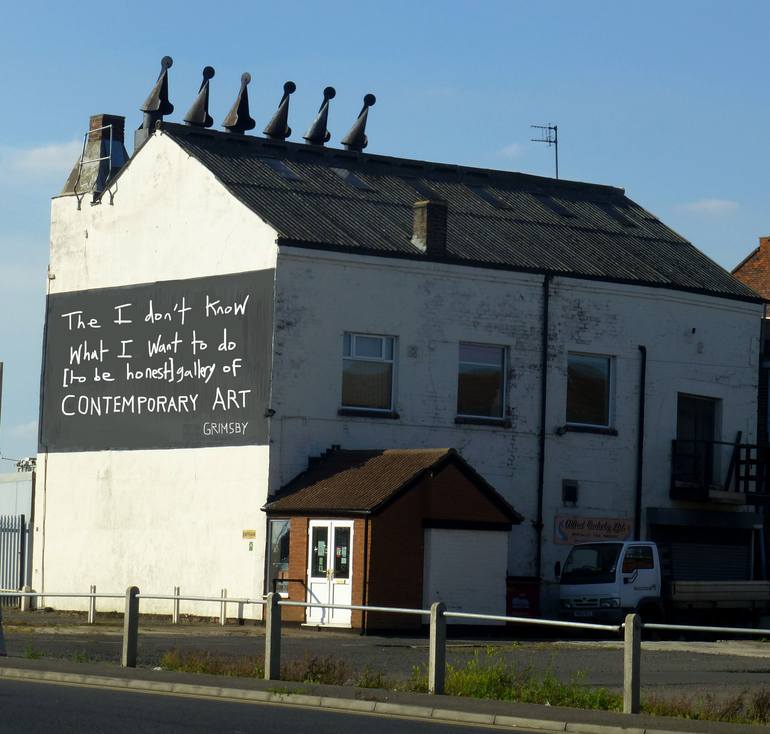 The I don't know
What I Want to do
[to be honest] gallery of
CONTEMPORARY ART
GRIMSBY
Alfred Enderby Ltd.